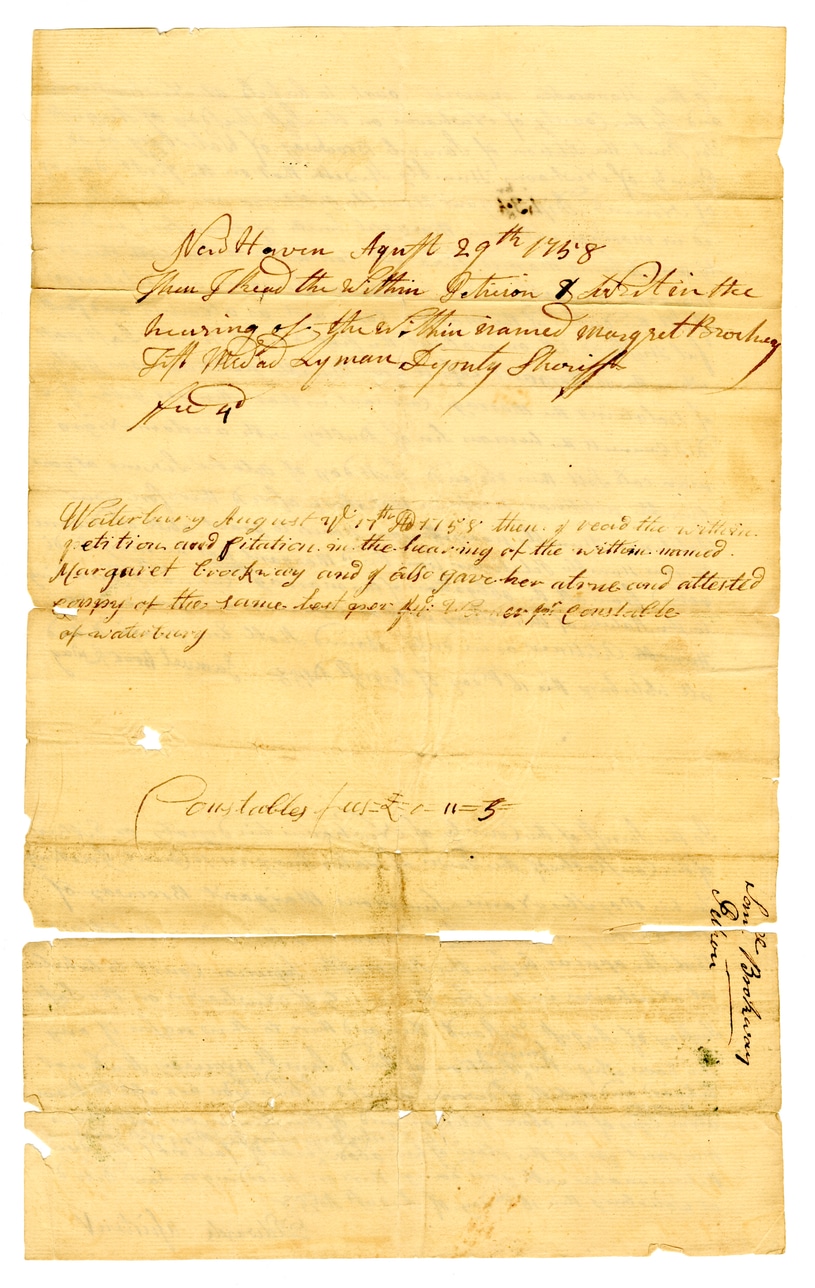 New Haven Agust 29th 1758
Then I Read the Within Petision & Writ in the
hearing of the Within named Margret Brockway
Test Medad Lyman Deputy Sheriff
fee 4d
Waterbury August 17th AD 1758 then I read the within
petition and Citation in the hearing of the within named
Margaret Brockway and I also gave her a true and attested
coppy of the same test per Constable
of waterbury
Constables fees = £ 0 - 11 = 3 =
Samll Brokway
Petison